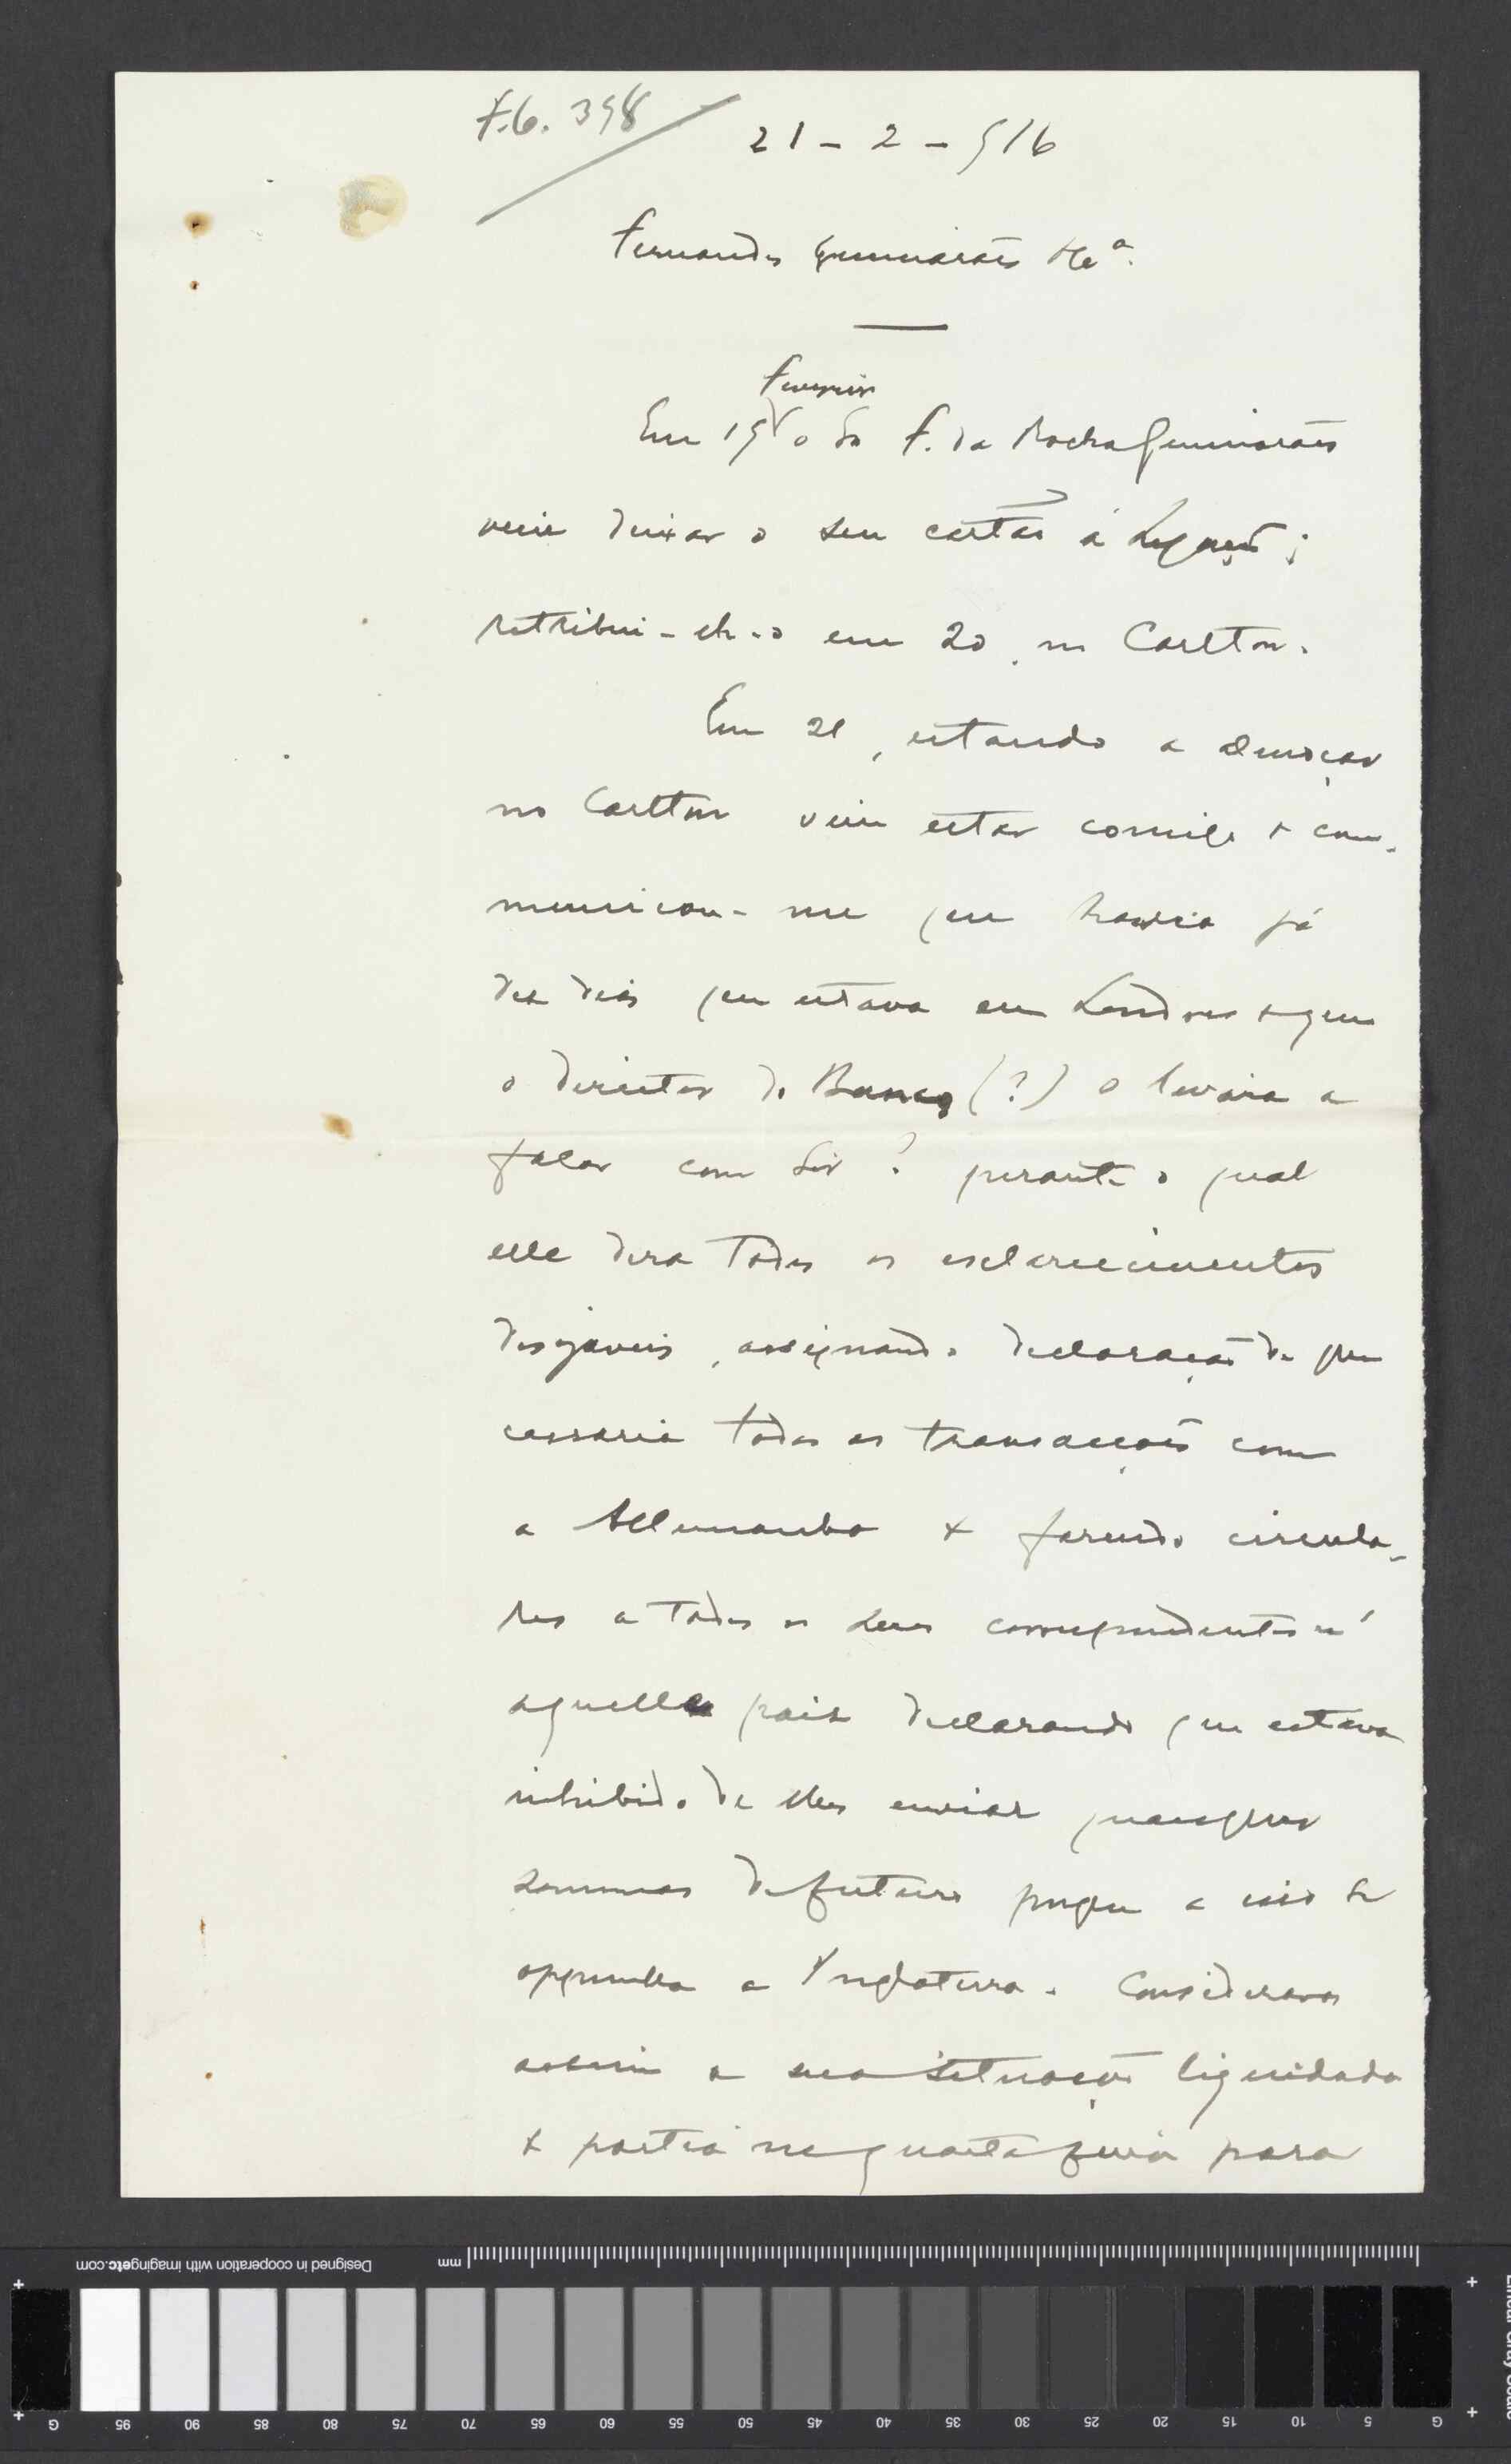 21 - 2 - 916
Fernandes Guimarães & Cª.
Fevereiro
Em 19 o Sr F. da Rocha Guimarães
veiu deixar o seu cartão á Legação;
retribui-lh'o em 20, no Carlton.
Em 21, estando a almoçar
no Carlton veiu estar comigo & com-
municou-me que havia já
dez dias que estava em Londres & que
o director do Banco (?) o levára a
falar com Sir ? perante o qual
elle dera todos os esclarecimentos
desejaveis, assignando declaração de que
cessaria todas as transacções com
a Allemanha & fazendo circula-
res a todos os seus correspondentes n'
aquelle paiz declarando que estava
inhibido de lhes enviar quaesquer
sommas de futuro porque a isso se
oppunha a Inglaterra. Considerava
assim a sua situação liquidada
& partia na quarta feira para
Designed in cooperation with imagingetc.com
mm
G 95 90 85 80 75 70 65 60 55 50 45 40 35 30 25 20 15 10 5 G